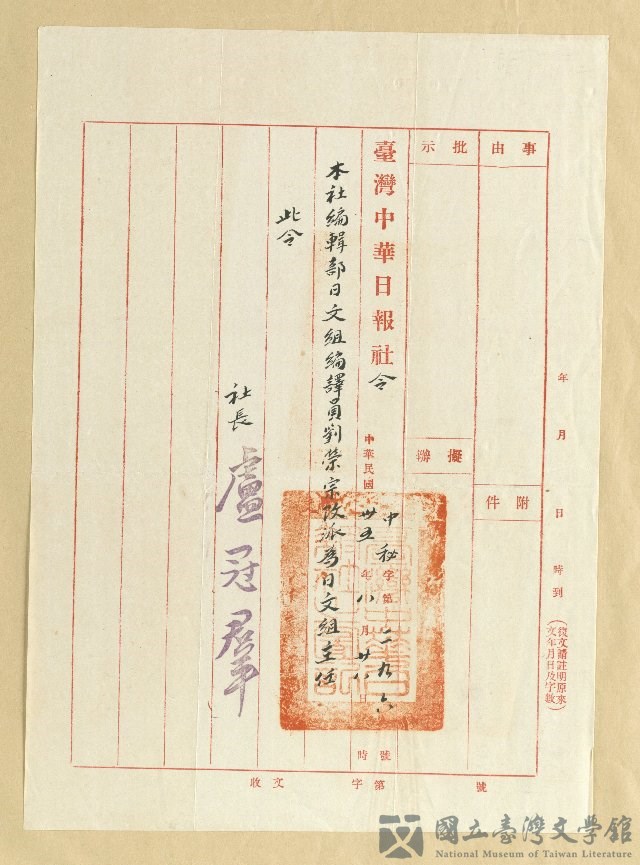 年 月 日 時到
（復文請註明原來文年月日及字號）
事由
附件
批示
擬辦
號
臺灣中華日報社令
中秘字第二九六號
中華民國卅五年八月廿八日 時
本社編輯部日文組編譯員劉榮宗改派為日文組主任
此令
社長 盧冠群
收文 字第 號
國立臺灣文學館
National Museum of Taiwan Literature